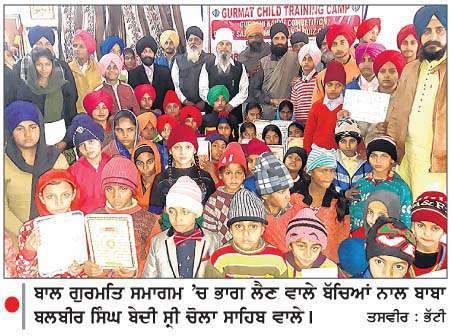 GURMAT CHILD TRAINING CAMP
ਬਾਲ ਗੁਰਮਤਿ ਸਮਾਗਮ 'ਚ ਭਾਗ ਲੈਣ ਵਾਲੇ ਬੱਚਿਆਂ ਨਾਲ ਬਾਬਾ
ਬਲਬੀਰ ਸਿੰਘ ਬੇਦੀ ਸ੍ਰੀ ਚੋਲਾ ਸਾਹਿਬ ਵਾਲੇ। ਤਸਵੀਰ : ਭੱਟੀ